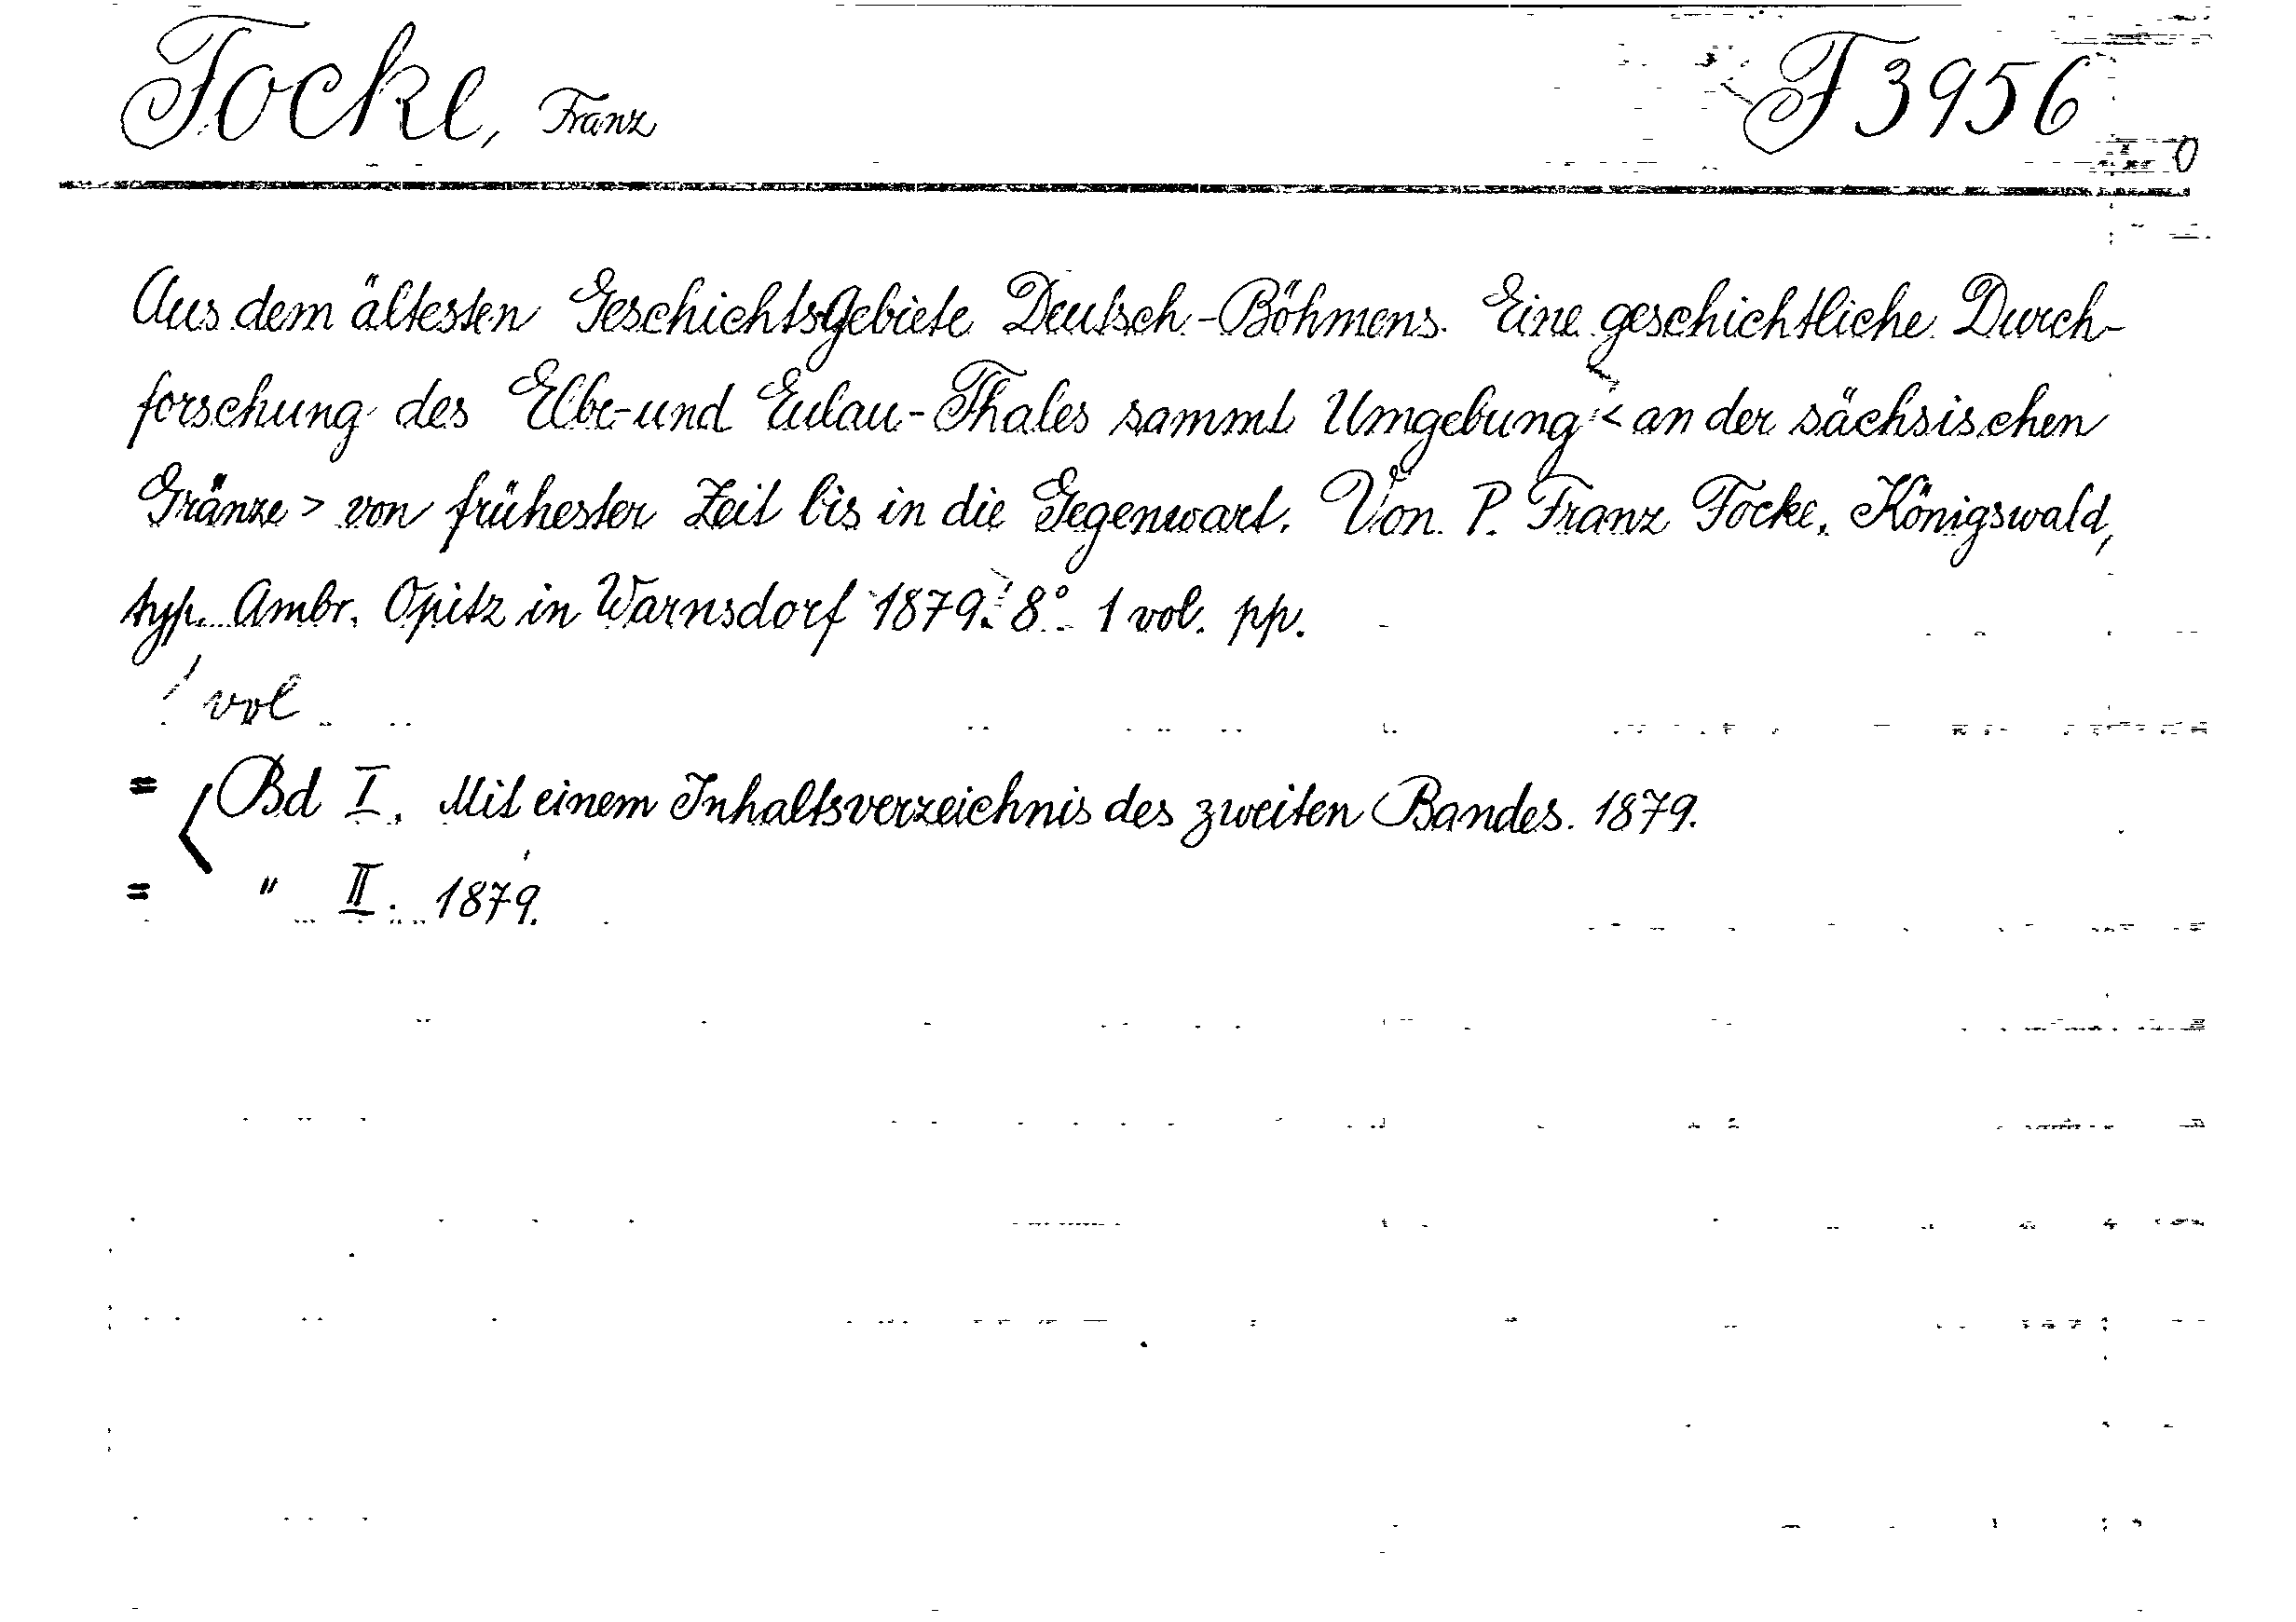 Focke, Franz F 3956
0
Aus dem ältesten Geschichtsgebiete Deutsch-Böhmens. Eine geschichtliche Durch-
forschung des Elbe- und Eulau-Thales sammt Umgebung < an der sächsischen
Gränze > von frühester Zeit bis in die Gegenwart. Von P. Franz Focke. Königswald,
typ. Ambr. Opitz in Warnsdorf 1879. 8° 1 vol. pp.
1 vol
= Bd I. Mit einem Inhaltsverzeichnis des zweiten Bandes. 1879.
= " II. 1879.